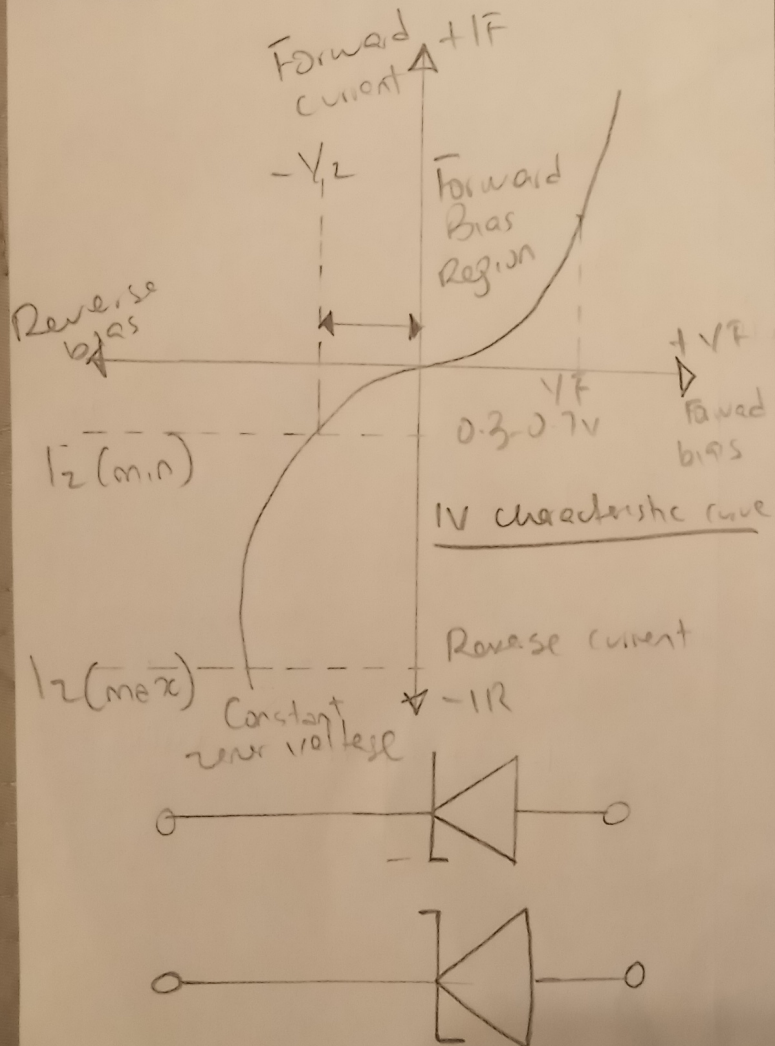 Forward
current
+IF
-Vz
Forward
Bias
Region
Reverse
bias
+VF
VF
0.3-0.7v
Faward
bias
Iz(min)
IV characteristic curve
Reverse current
Iz(max)
-IR
Constant
zener voltage